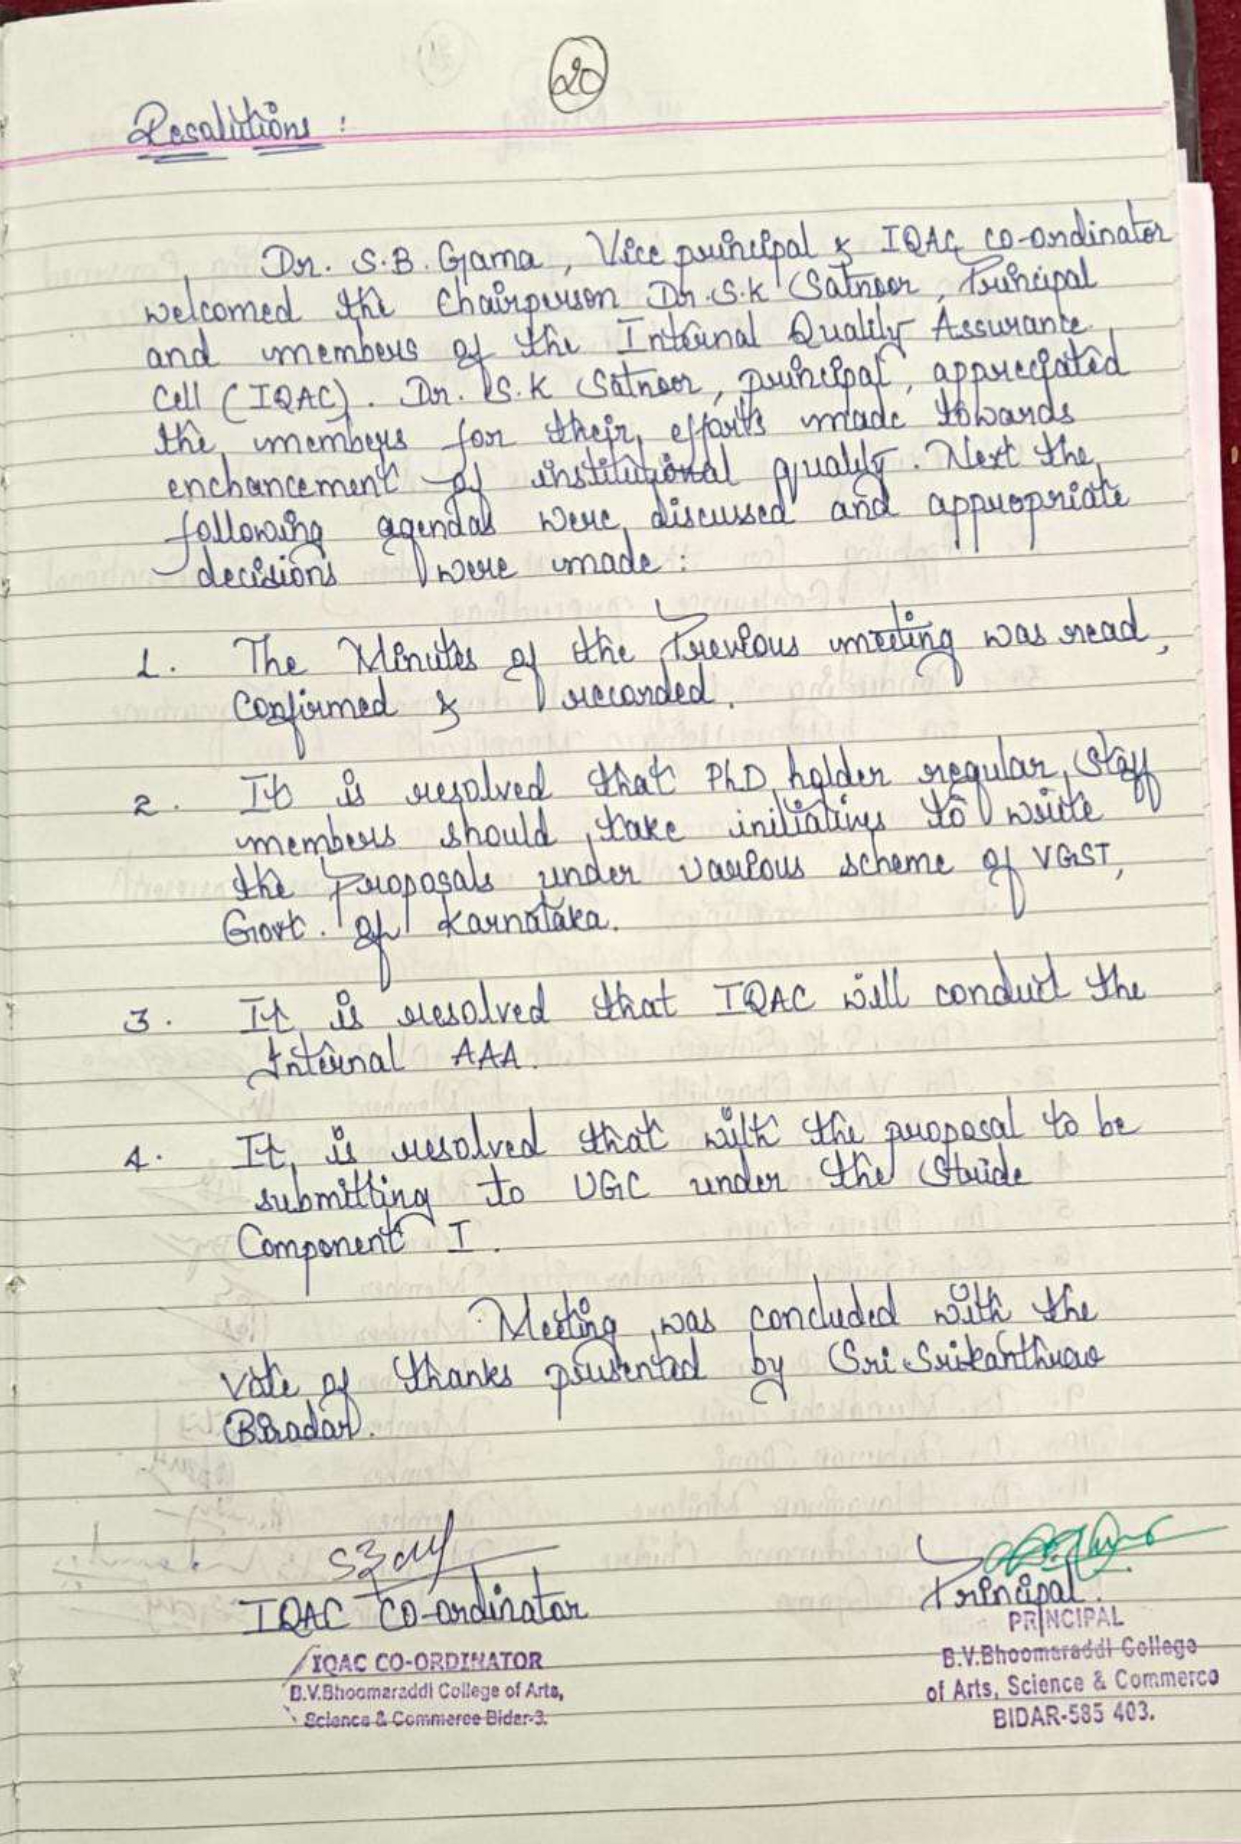 20
Resalutions :
Dr. S.B. Gama, Vice principal & IQAC co-ordinator
welcomed the Chairperson Dr. S.K Satnoor, Principal
and members of the Internal Quality Assurance
Cell (IQAC). Dr. S.K Satnoor, principal, appreciated
the members for their efforts made towards
enchancement of institutional quality. Next the
following agendas were discussed and appropriate
decisions were made :
1. The Minutes of the Previous meeting was read,
Confirmed & recorded.
2. It is resolved that PhD holder regular staff
members should take initiatives to write
the Proposals under various scheme of VGST,
Govt. of Karnataka.
3. It is resolved that IQAC will conduct the
Internal AAA.
4. It is resolved that with the proposal to be
submitting to UGC under the Stride
Component I.
Meeting was concluded with the
vote of thanks presented by Sri Srikanthrao
Biradar.
IQAC Co-ordinator
Principal.
IQAC CO-ORDINATOR
B.V.Bhoomaraddi College of Arts,
Science & Commerce Bidar-3.
PRINCIPAL
B.V.Bhoomaraddi College
of Arts, Science & Commerce
BIDAR-585 403.